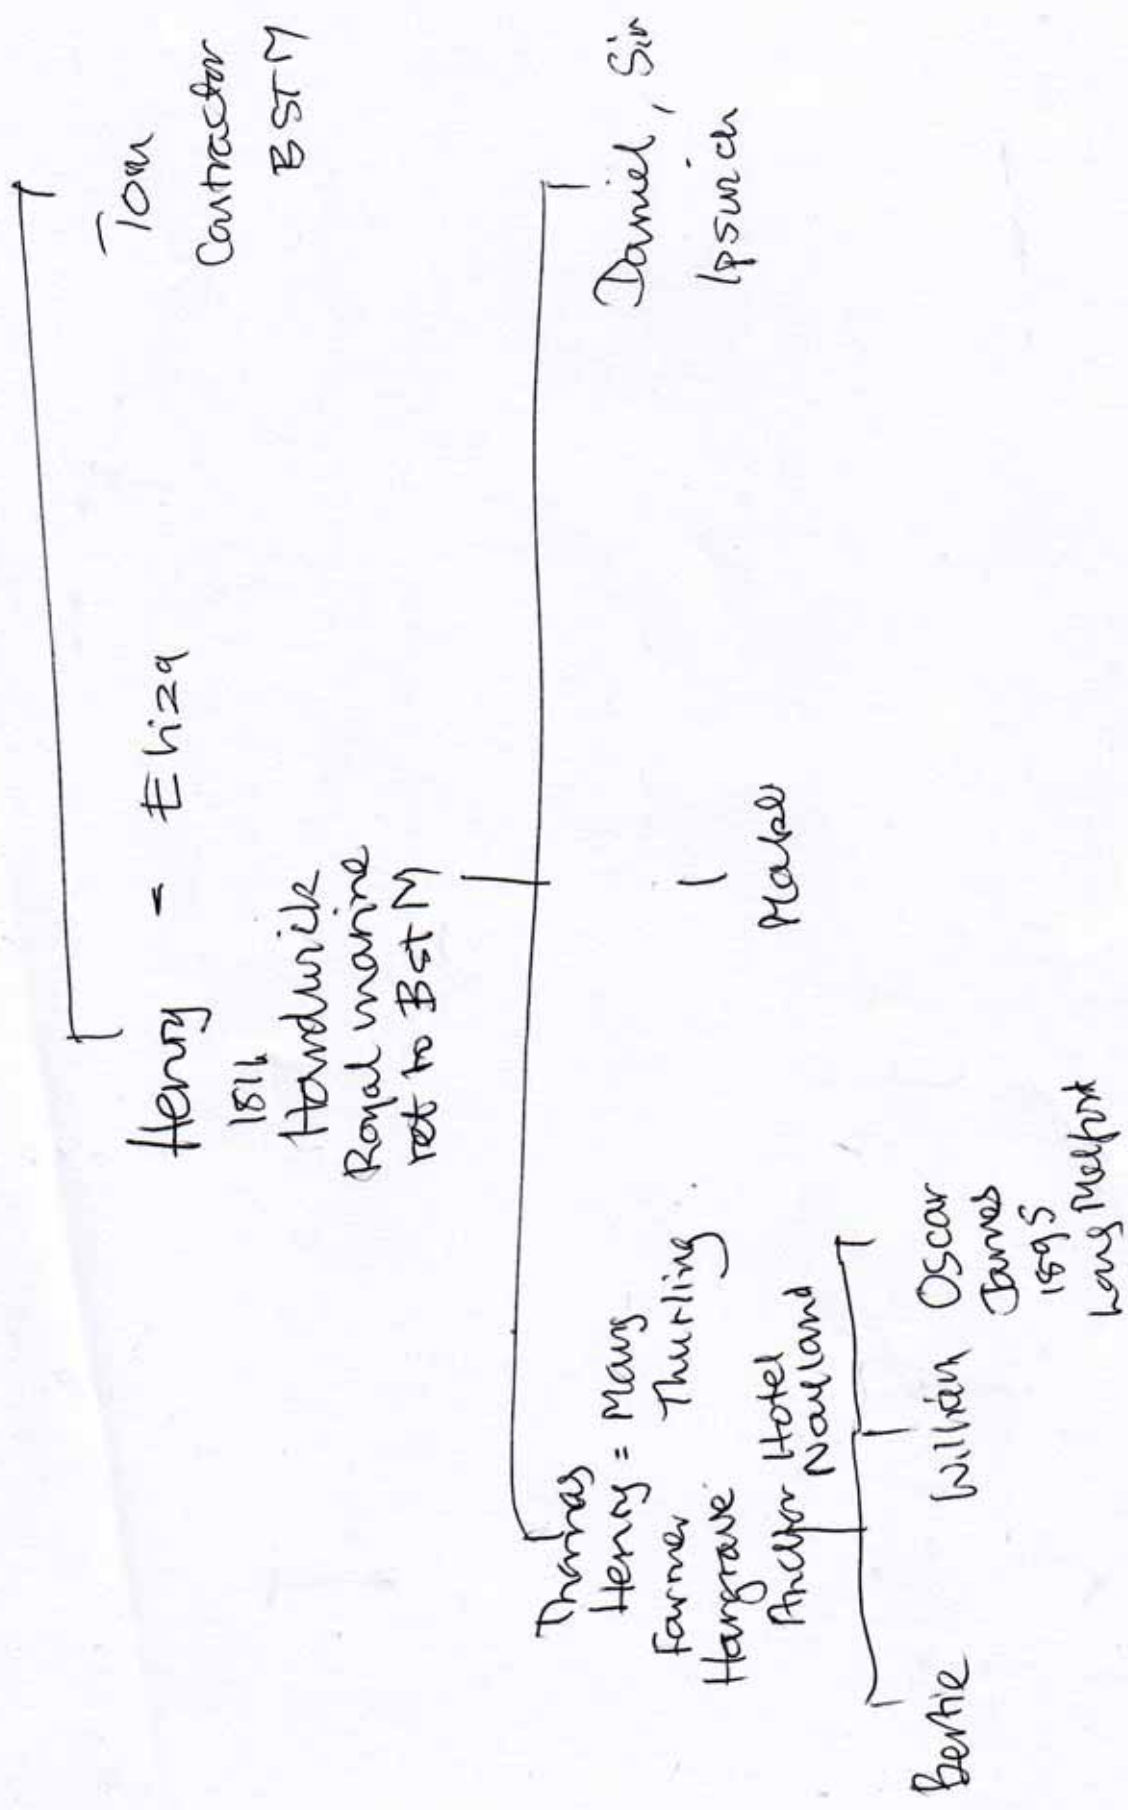 Henry = Eliza
1811
Hardwick
Royal marine
ret to BSt M
Tom
Contractor
BSTM
Thomas
Henry = Mary
Farmer Thurling
Hargrave
Anchor Hotel
Nayland
Daniel, Sir
Ipswich
Bertie
William
Oscar
James
1895
Long Melford